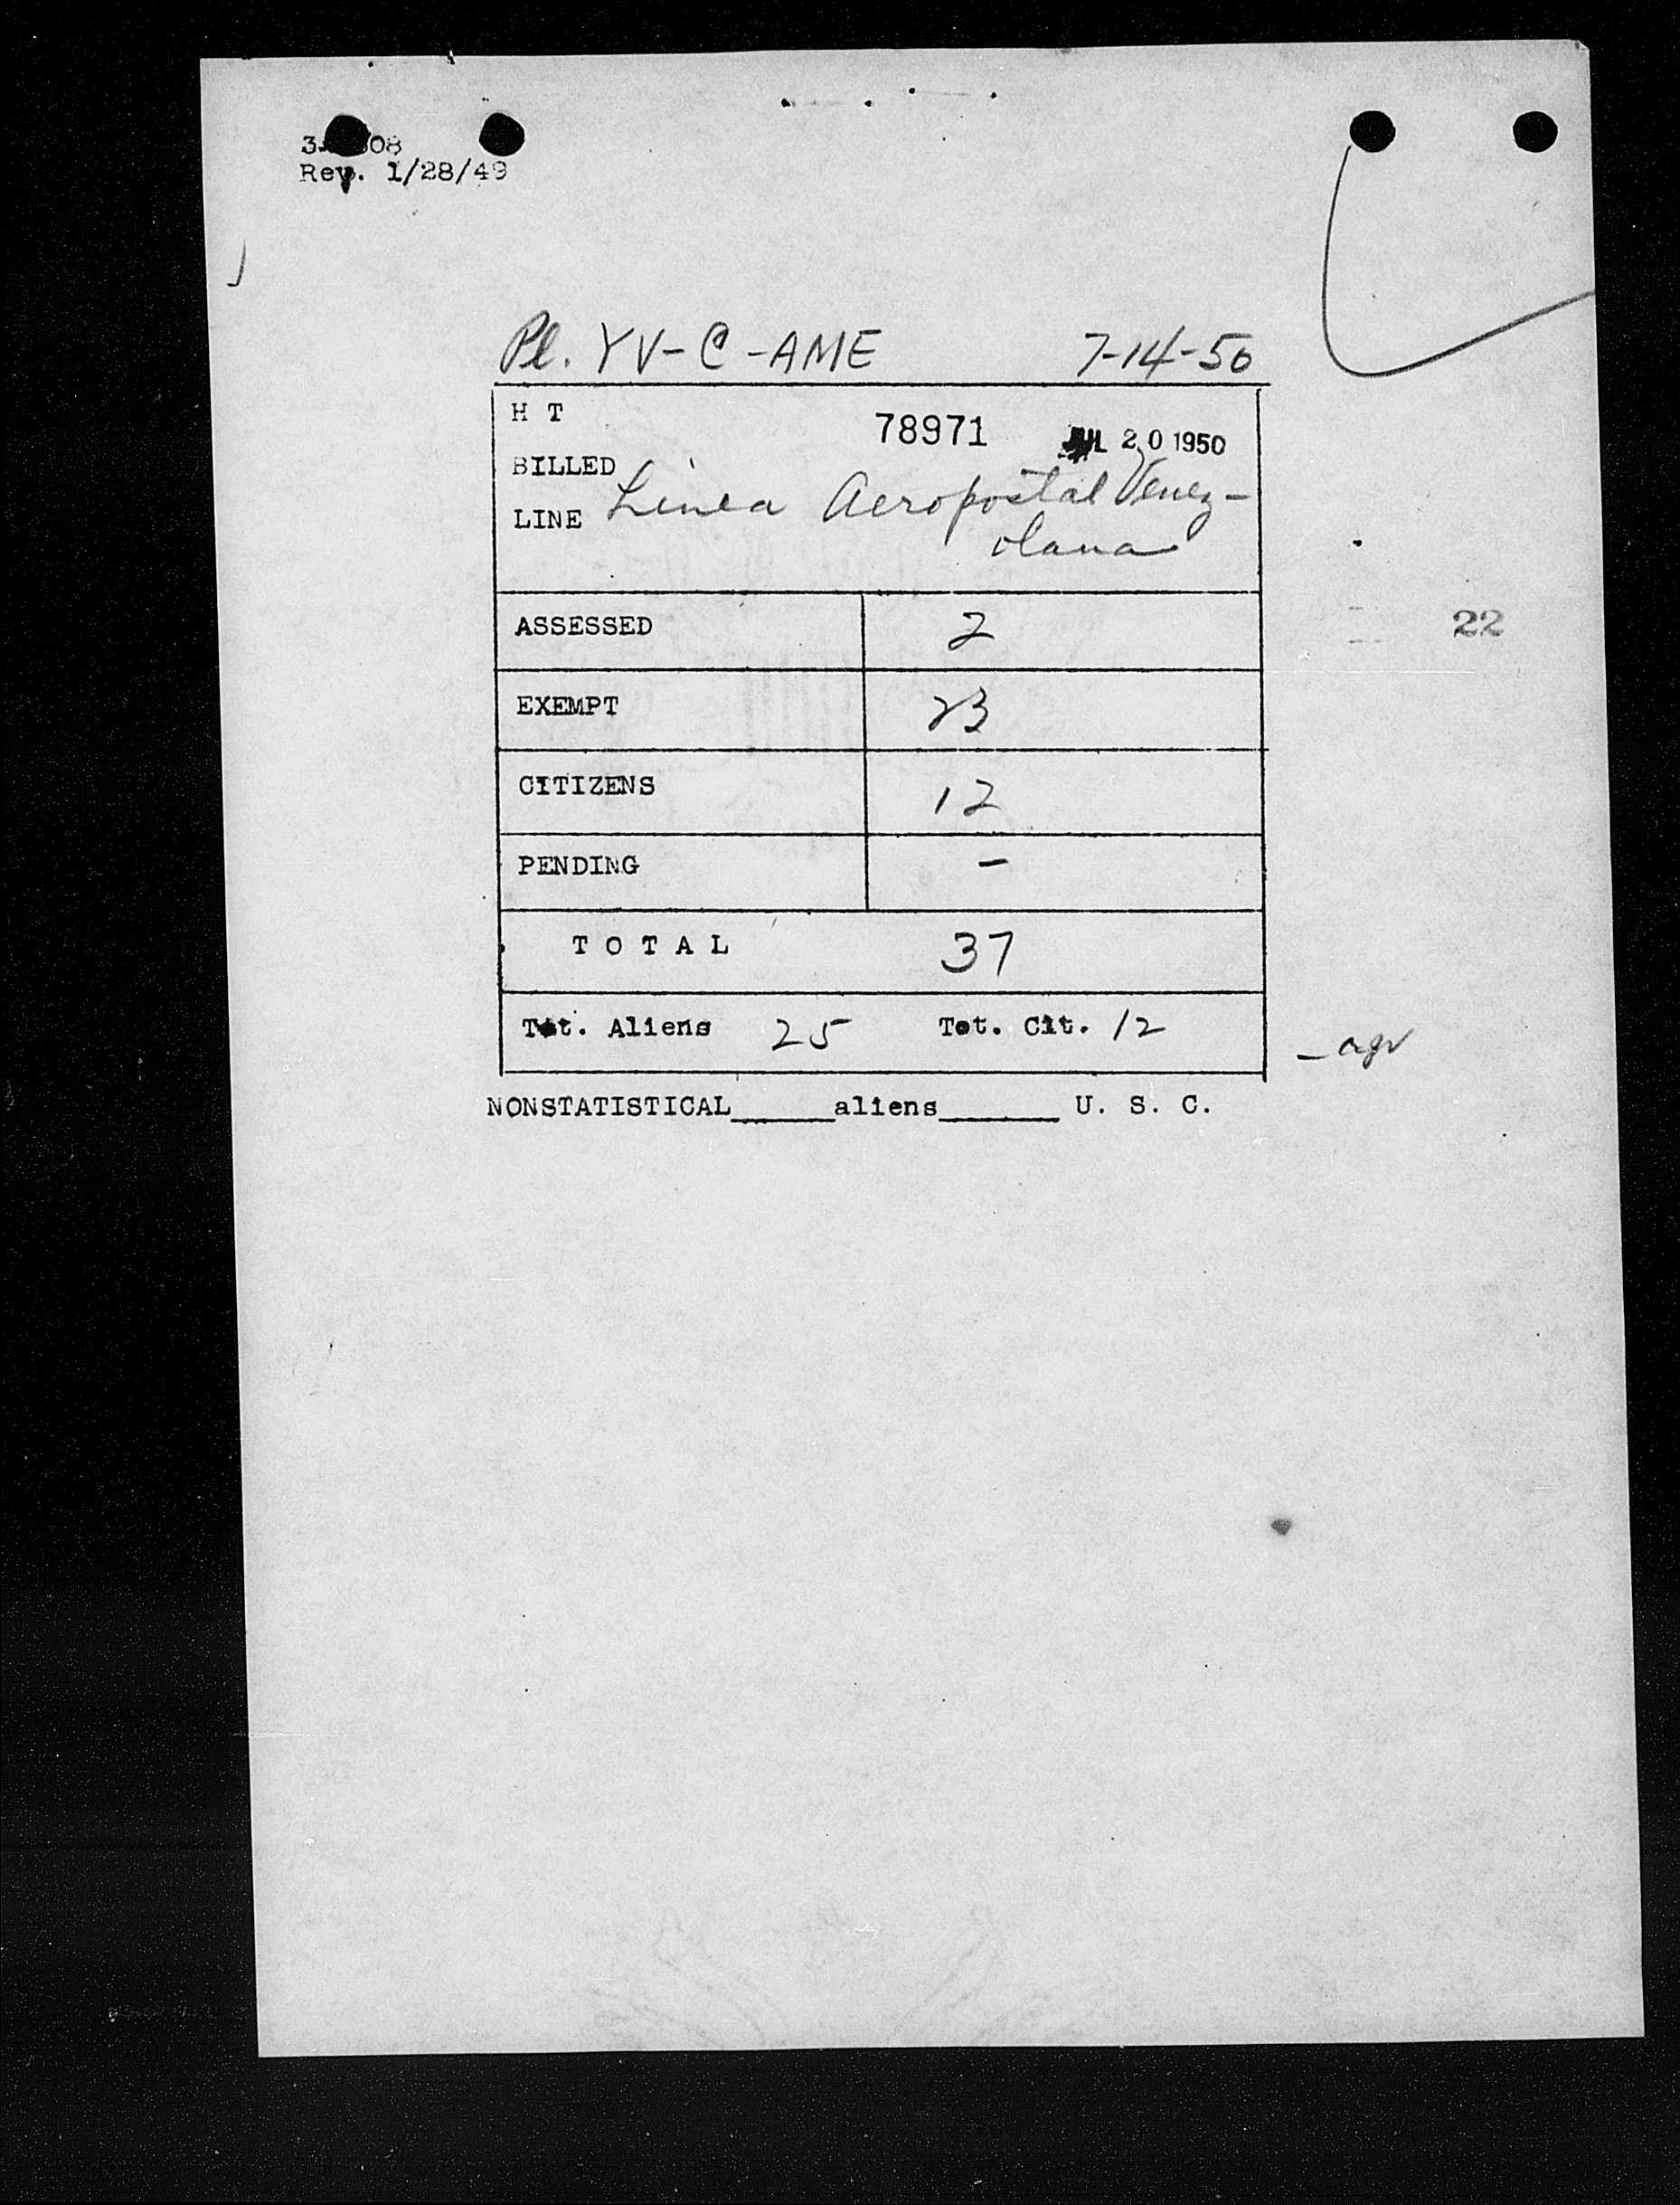 Rev. 1/28/49
Pl. YV-C-AME 7-14-50
H T
78971 JUL 20 1950
BILLED
LINE Linea Aeropostal Venez-
olana
ASSESSED 2
22
EXEMPT 23
CITIZENS 12
PENDING –
TOTAL 37
Tot. Aliens 25 Tot. Cit. 12
NONSTATISTICAL______aliens_______ U. S. C.